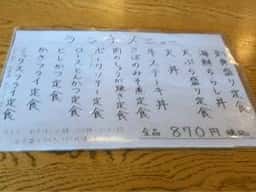 ランチメニュー
刺身盛り定食
海鮮ちらし丼
天ぷら盛り定食
天丼
牛ステーキ丼
さばのみそ煮定食
肉のしょうが焼き定食
ポークソテー定食
ロースとんかつ定食
ヒレかつ定食
かきフライ定食
ミックスフライ定食
全品 870円